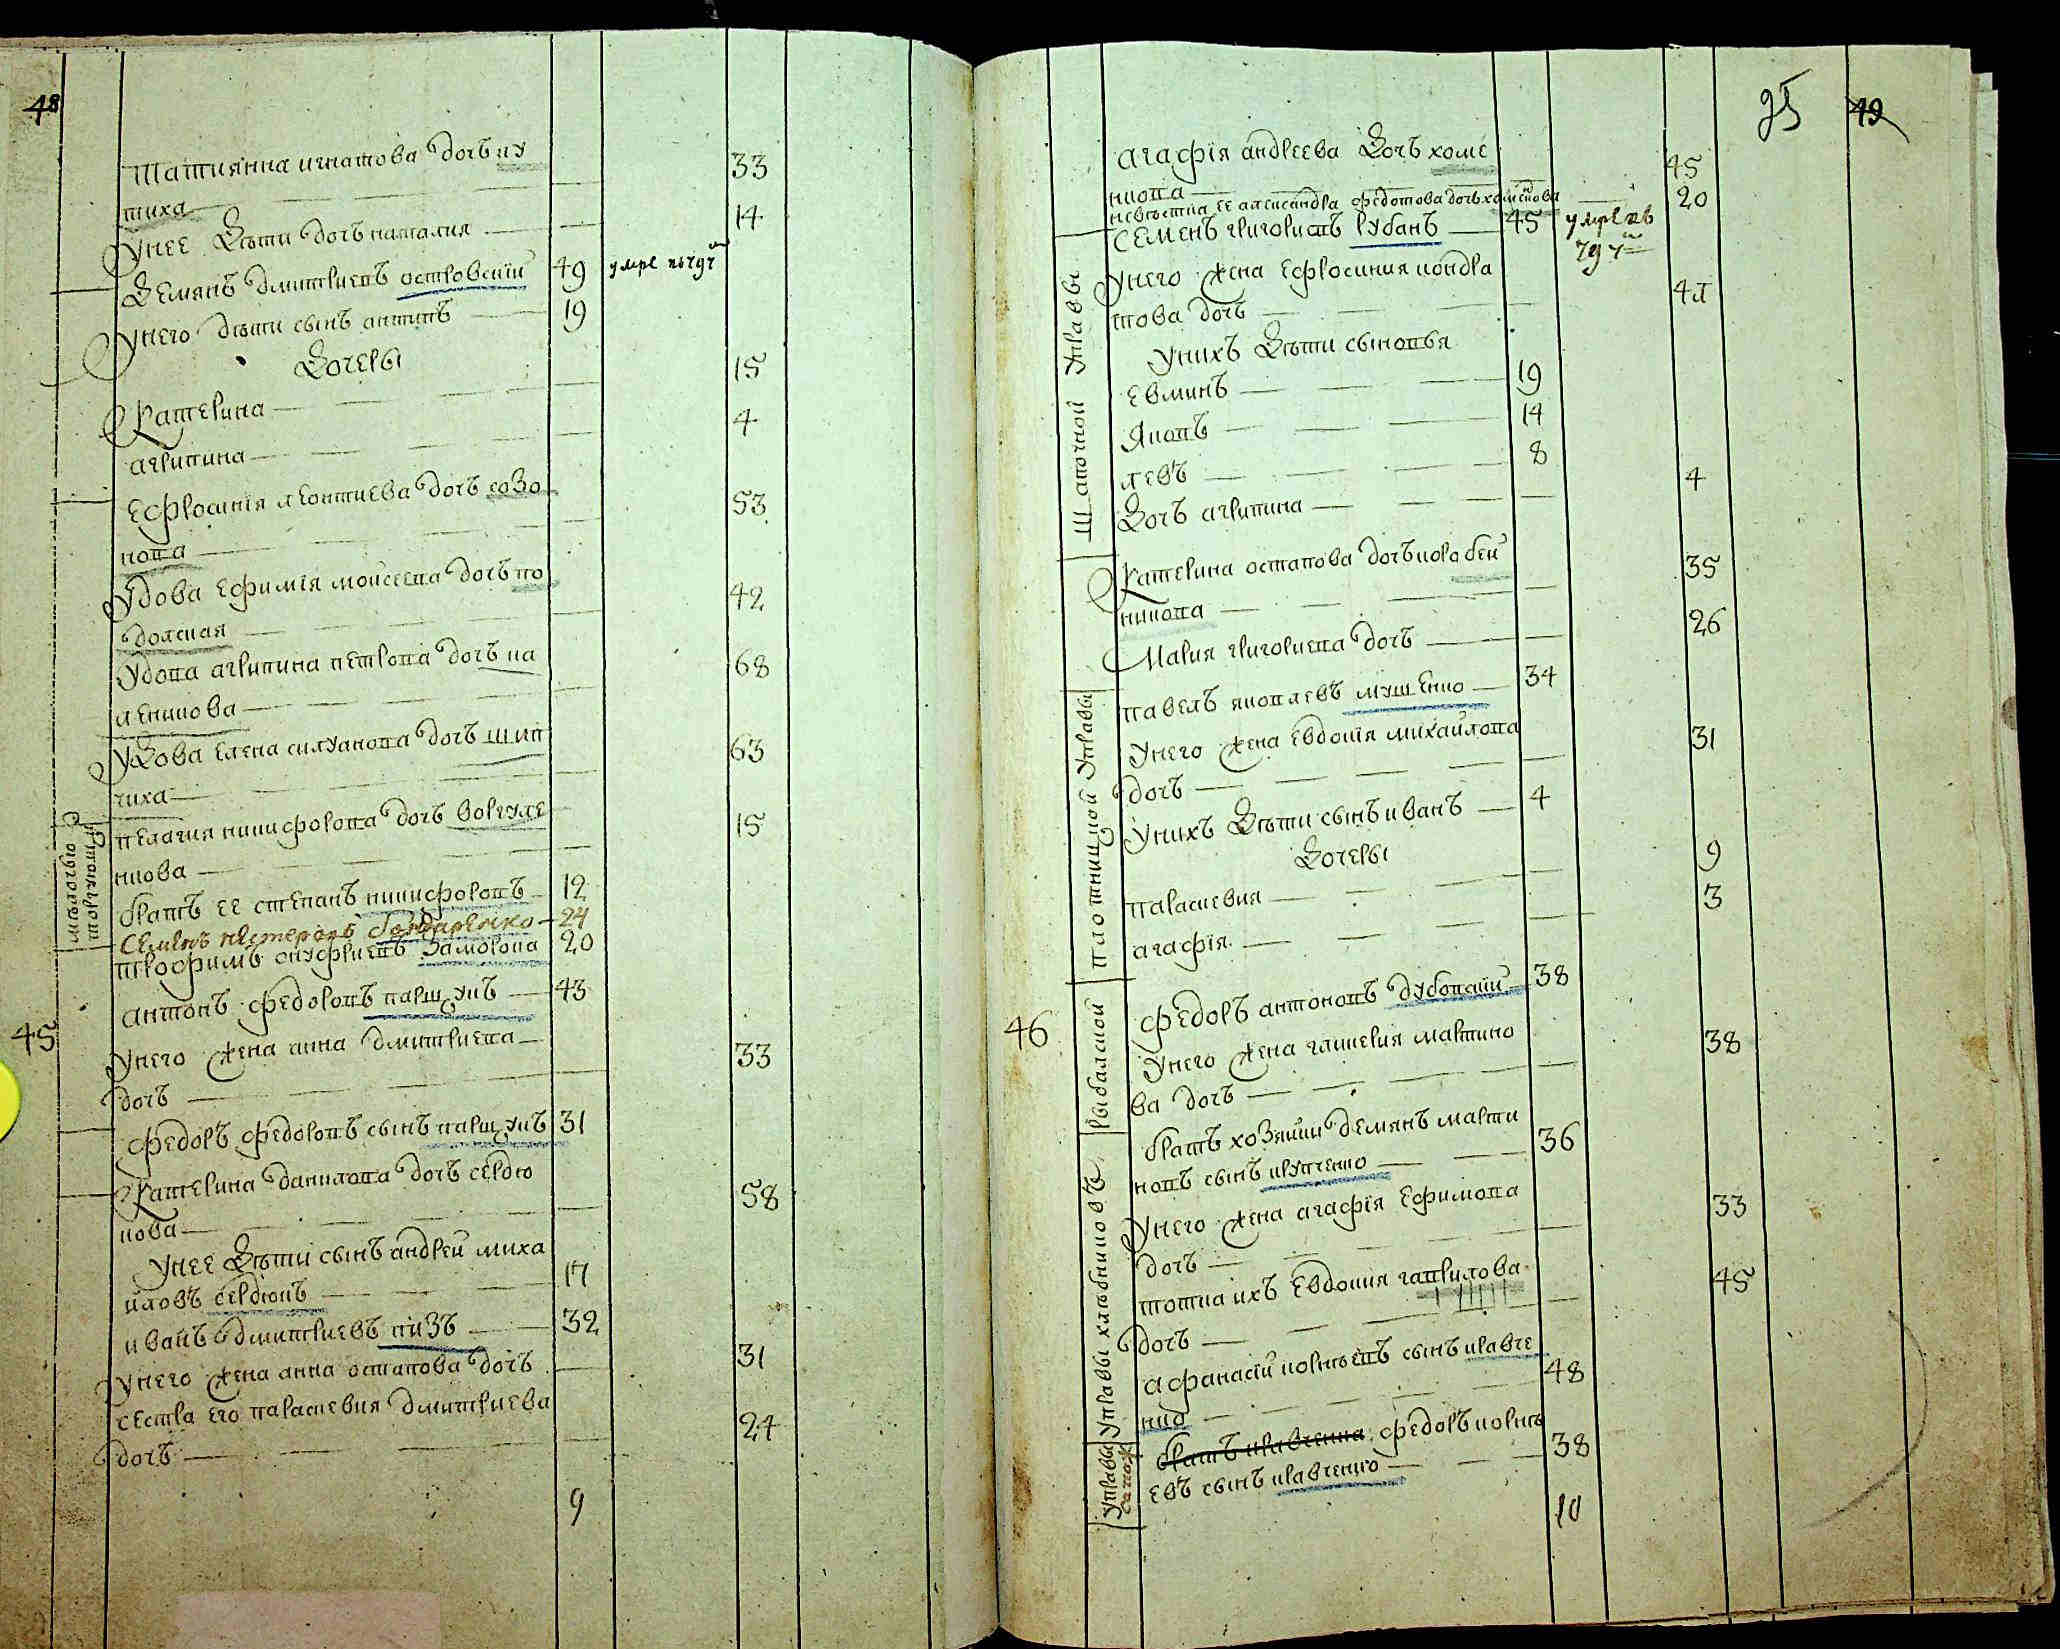 48
Татиянна игнатова дочъ ку
тиха 33
У нее дѣти дочъ наталия 14
Демянъ дмитриевъ островский 49 умре
У него дѣти сынъ антипъ 19
Дочеры
Катерина 15
агрипина 4
Ефросиния леонтиева дочъ созо
нова 53
Удова Ефимия моисеева дочъ по
долская 42
Удова агрипина петрова дочъ ка
леникова 68
Удова Елена силуанова дочъ
чиха 63
пелагия никифорова дочъ
нкова 15
братъ ее степанъ никифоровъ 12
Семенъ нестеровъ бондаренко 24
трофимъ онуфриевъ замориа 20
антонъ федоровъ паршукъ 43
45
У него жена анна дмитриева
дочъ 33
федоръ федоровъ сынъ паршукъ 31
Катерина данилова дочъ сердю
кова 58
У нее дѣти сынъ андрей миха
иловъ сердюкъ 17
иванъ дмитриевъ 32
у него жена анна остапова дочъ 31
сестра его параскевия дмитриева
дочъ 24
9
мѣлочью
торгуют
95 49
агафия андреева дочъ хоме
нкова 45
невѣстка ее александра федотова дочъ хоменкова 20
Семенъ григориевъ рубанъ 45 умре въ
79 г
У него жена Ефросиния кондра
това дочъ 41
У нихъ дѣти сыновья
Евминъ 19
Яковъ 14
левъ 8
Дочъ агрипина 4
Катерина остапова дочъ коробей
никова 35
Мария григориева дочъ 26
павелъ яковлевъ мущенко 34
У него жена Евдокия михайлова
дочъ 31
У нихъ дѣти сынъ иванъ 4
Дочеры
параскевия 9
агафия 3
46
федоръ антоновъ дубовый 38
У него жена гликерия мартино
ва дочъ 38
братъ хозяйки демянъ марти
новъ сынъ крупченко 36
У него жена агафия Ефимова
дочъ 33
тотка ихъ Евдокия гаврилова
дочъ 45
афанасий корнѣевъ сынъ кравче
нко 48
братъ кравченка федоръ корнѣ
евъ сынъ кравченко 38
10
Шапочной управы
плотницкой управы
рыбалской
управы хлѣбниковъ
управы сапож